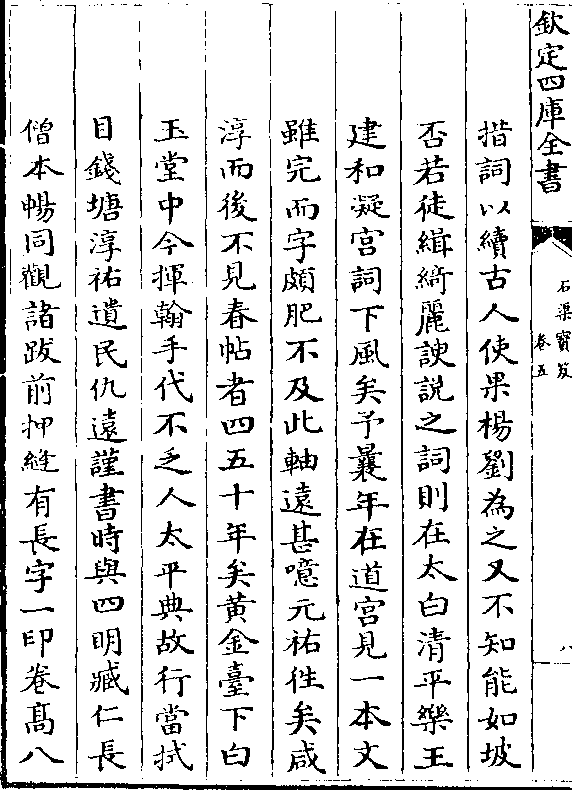 欽定四庫全書
石渠寶笈
卷五
八
措詞以續古人使果楊劉為之又不知能如坡
否若徒緝綺麗諛説之詞則在太白清平樂王
建和凝宮詞下風矣予曩年在道宮見一本文
雖完而字頗肥不及此軸遠甚噫元祐徃矣咸
淳而後不見春帖者四五十年矣黄金臺下白
玉堂中今揮翰手代不乏人太平典故行當拭
目錢塘淳祐遺民仇遠謹書時與四明臧仁長
僧本暢同觀諸跋前押縫有長字一印卷髙八